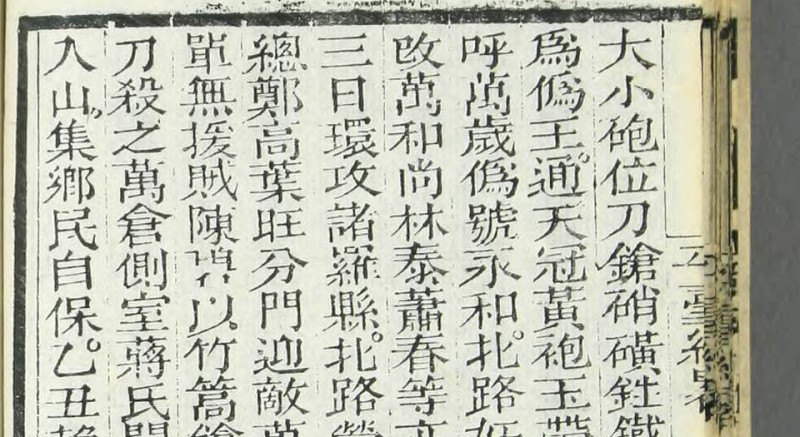 大小砲位刀鎗硝磺鉎鐵
爲僞王。通天冠黃袍玉帶
呼萬歲僞號永和。北路
改萬和尚林泰蕭春等
三日環攻諸羅縣。北路營
總鄭高葉旺分門迎敵萬
單無援賊陳以。竹篙鎗
刀殺之萬倉側室蔣氏聞
入山。集鄉民自保。乙丑